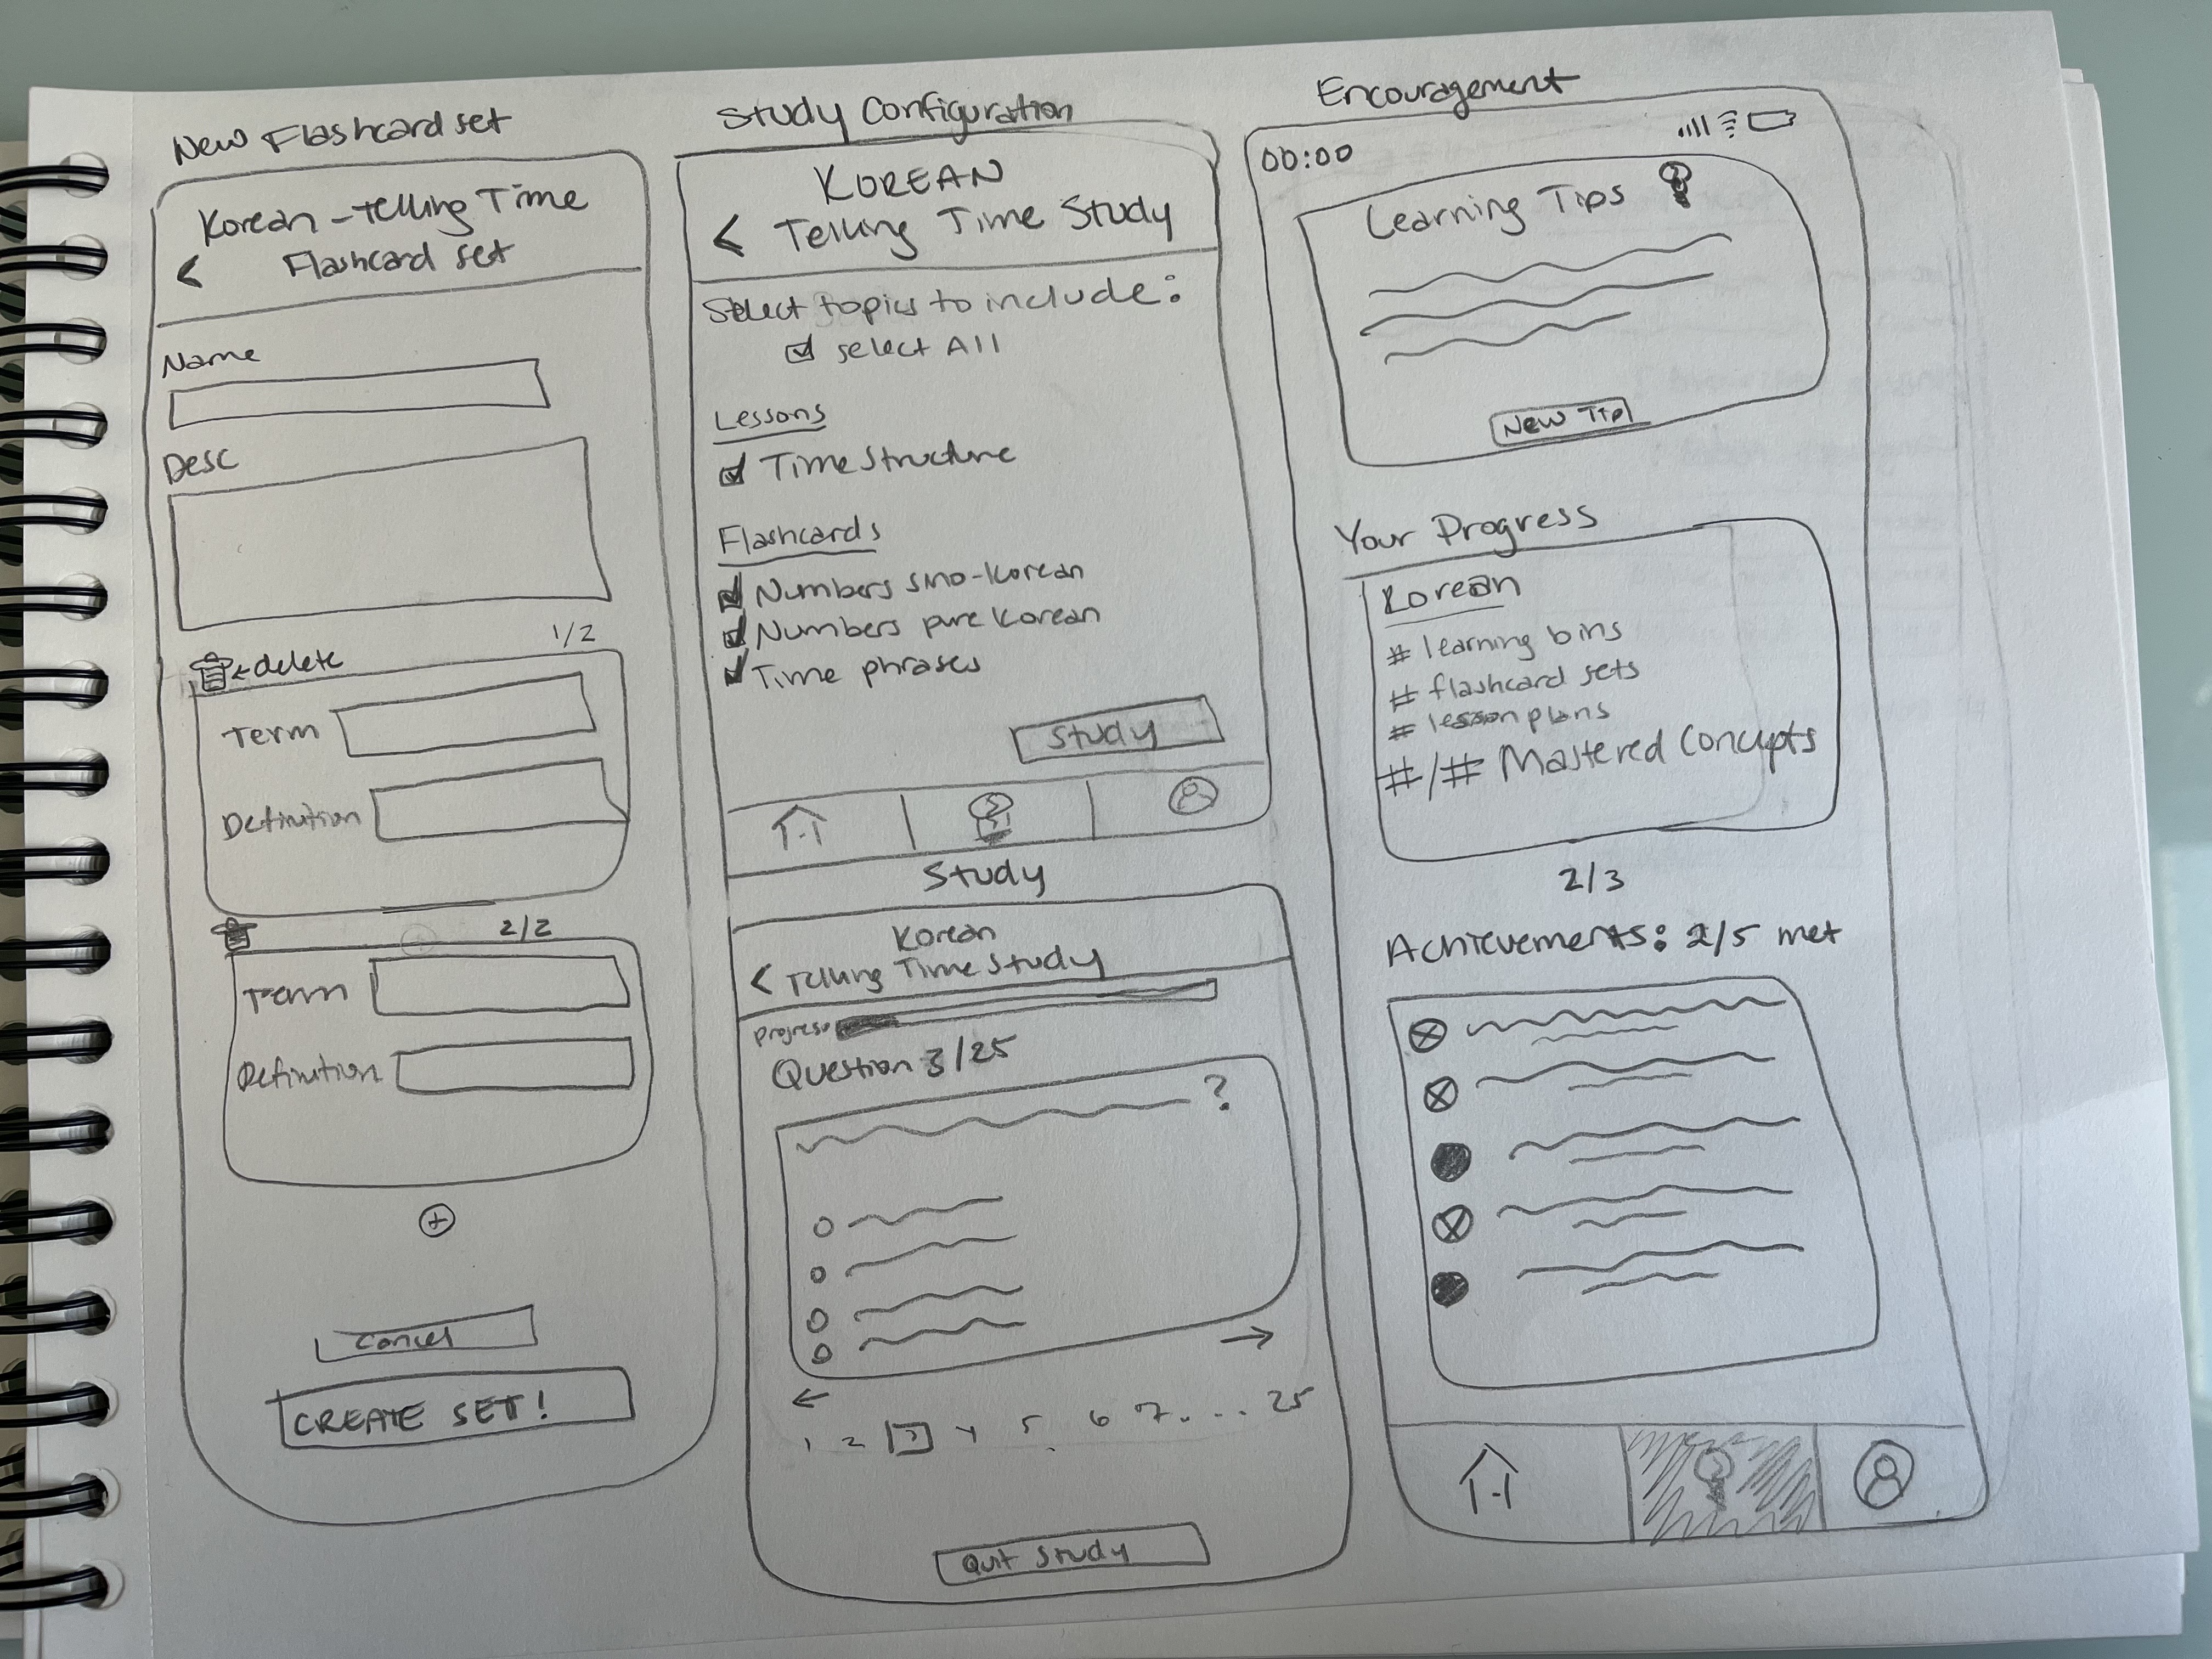 New Flashcard set
Korean - Telling Time
< Flashcard set
Name
Desc
1/2
←delete
Term
Definition
2/2
Term
Definition
+
Cancel
CREATE SET!
Study Configuration
KOREAN
< Telling Time Study
Select topics to include:
select All
Lessons
Time Structure
Flashcards
Numbers sino-Korean
Numbers pure Korean
Time phrases
Study
Study
Korean
< Telling Time Study
Progress
Question 3/25
?
→
←
1 2 3 4 5 6 7 . . . . 25
Quit Study
Encouragement
00:00
Learning Tips
New Tip
Your Progress
Korean
# learning bins
# flashcard sets
# lesson plans
#/# Mastered Concepts
2/3
Achievements: 2/5 met